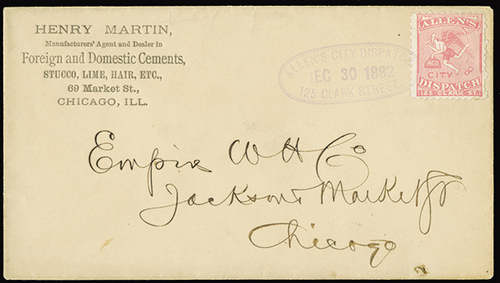 HENRY MARTIN,
Manufacturers' Agent and Dealer in
Foreign and Domestic Cements,
STUCCO, LIME, HAIR, ETC.,
69 Market St.,
CHICAGO, ILL.
ALLEN'S CITY DISPATCH
DEC 30 1882
125 CLARK STREET
ALLEN'S
CITY
DISPATCH
125 CLARK ST.
Empire W H Co
Jackson & Market St
Chicago